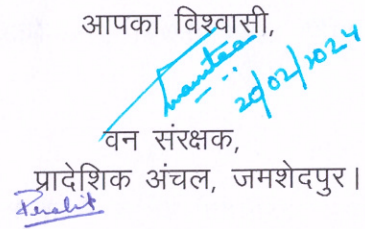 आपका विश्वासी,
20/02/2024
वन संरक्षक,
प्रादेशिक अंचल, जमशेदपुर।